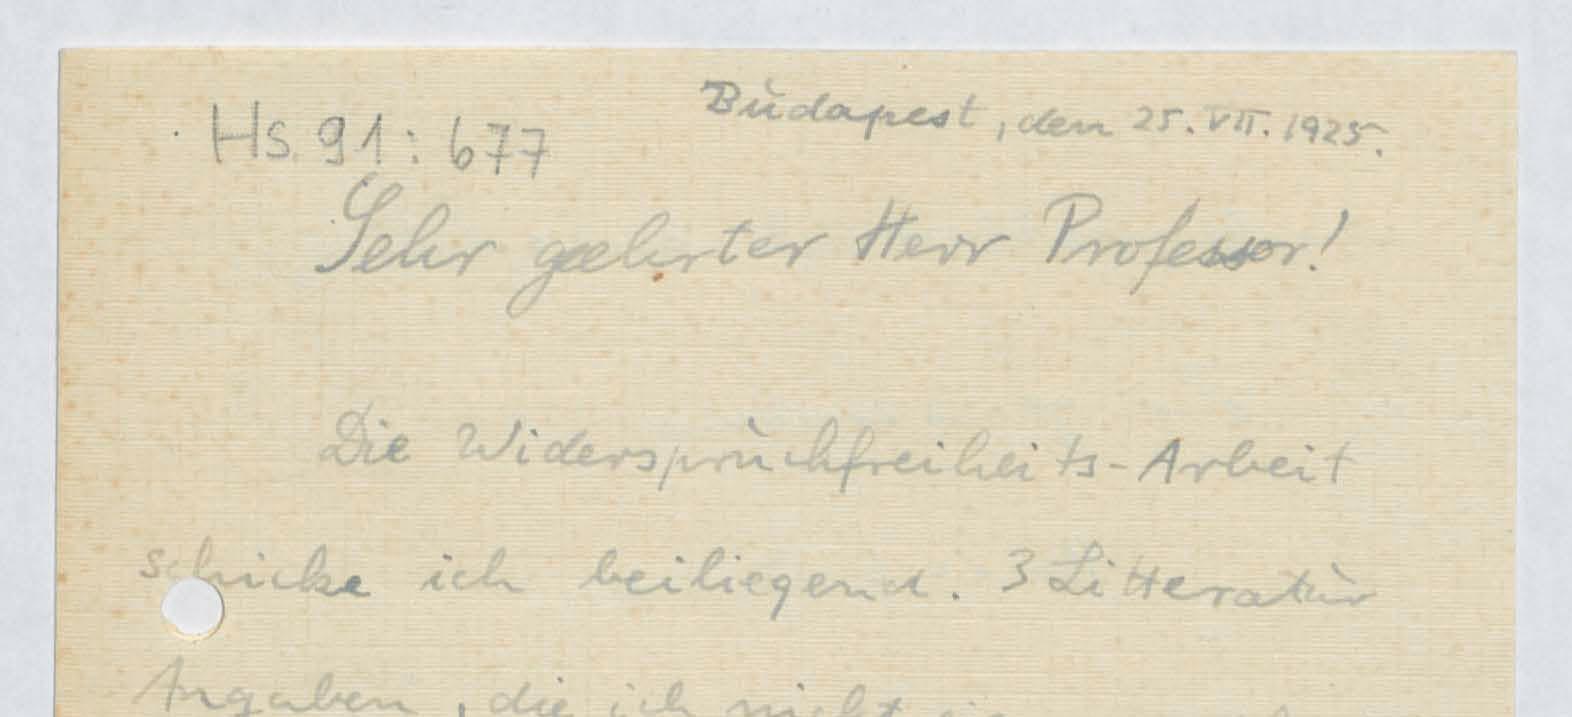 Budapest, den 25. VII. 1925.
Hs. 91: 677
Sehr geehrter Herr Professor!
Die Widerspruchfreiheits-Arbeit
schicke ich beiliegend. 3 Litteratur
Angaben, die ich nicht